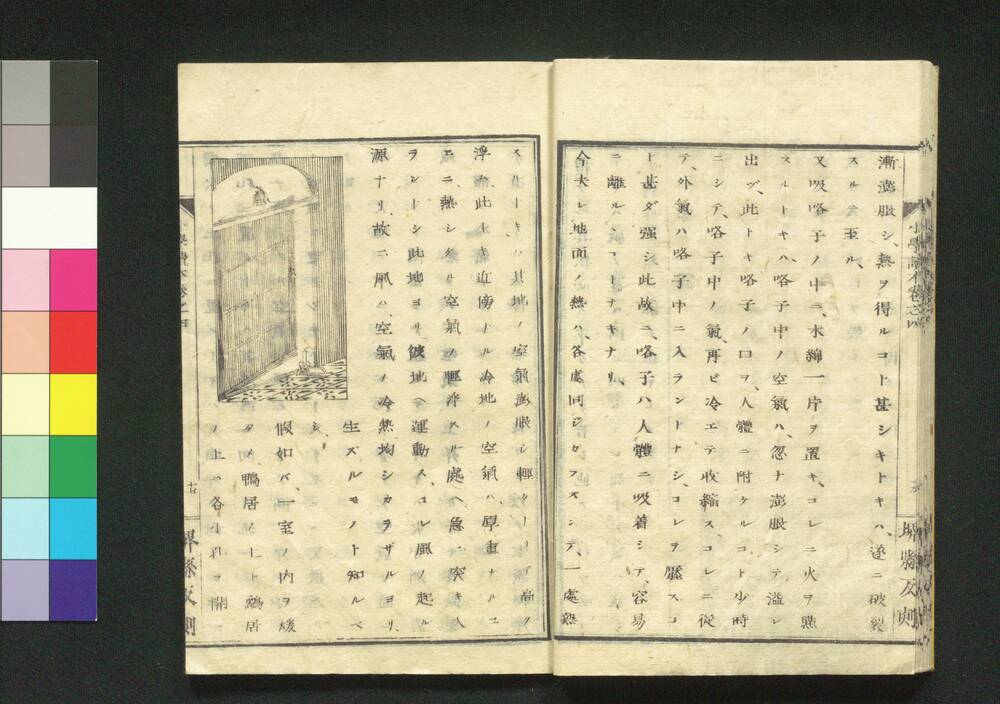 漸漸澎脹シ、熱ヲ得ルコト甚シキトキハ、遂ニ破裂
スルニ至ル、
又吸咯子ノ中ニ、水綿一片ヲ置キ、コレニ火ヲ點
スルトキハ、咯子中ノ空氣ハ、忽チ澎脹シテ溢レ
出ヅ、此トキ咯子ノ口ヲ、人體ニ附クルコト少時
ニシテ、咯子中ノ氣、再ビ冷エテ收縮ス、コレニ從
テ、外氣ハ咯子中ニ入ラントナシ、コレヲ壓スコ
ト甚ダ強シ、此故ニ、咯子ハ人體ニ吸着シテ、容易
ニ離ルヽコトナキナリ、
今夫レ地面ノ熱ハ、各處同ジカラズシテ、一處熱
スルトキハ、其地ノ空氣澎脹シ、輕クナリテ高ク
浮ム、此トキ近傍ノ冷地ノ空氣ハ、厚重ナルユ
エニ、熱シタル空氣ノ輕浮スル處ヘ、急ニ突キ入
ラントシ、此地ヨリ彼地ヘ運動ス、コレ風ノ起ル
源ナリ、故ニ風ハ、空氣ノ冷熱均シカラザルヨリ、
生ズルモノト知ルベ
シ、
假如バ、一室ノ内ヲ煖
タメ、鴨居ノ上ト鴫居
ノ上ニ各小孔ヲ開
小學讀本卷之四
堺縣反刻
十
堺縣反刻